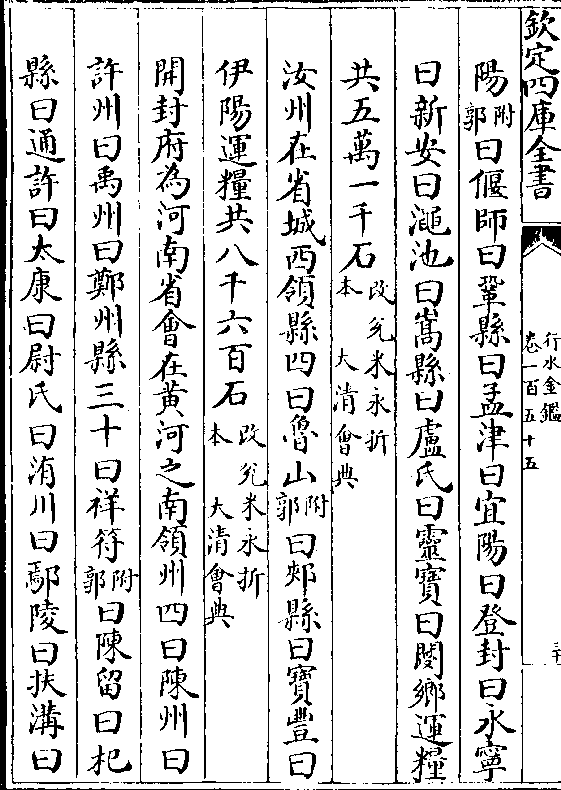 欽定四庫全書
行水金鑑
卷一百五十五
三十
陽附郭曰偃師曰鞏縣曰孟津曰宜陽曰登封曰永寧
曰新安曰澠池曰嵩縣曰盧氏曰靈寶曰閿鄉運糧
共五萬一千石改兌米永折本 大清會典
汝州在省城西領縣四曰魯山附郭曰郟縣曰寶豐曰
伊陽運糧共八千六百石改兌米永折本 大清會典
開封府為河南省會在黃河之南領州四曰陳州曰
許州曰禹州曰鄭州縣三十曰祥符附郭曰陳留曰杞
縣曰通許曰太康曰尉氏曰洧川曰鄢陵曰扶溝曰